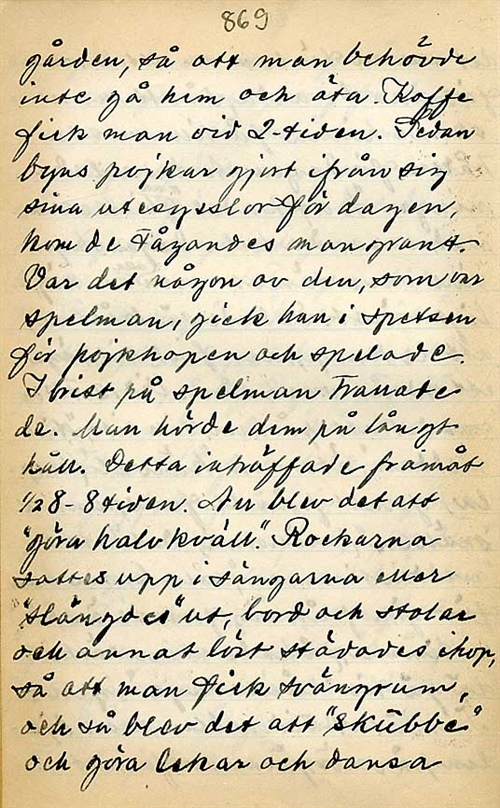 869
gården, så att man behövde
inte gå hem och äta. Kaffe
fick man vid 2-tiden. Sedan
byns pojkar gjort ifrån sig
sina utesysslor för dagen,
kom de tågandes mangrant.
Var det någon av dem, som var
spelman, gick han i spetsen
för pojkhopen och spelade.
I brist på spelman trallade
de. Man hörde dem på långt
håll. Detta inträffade framåt
½8-8 tiden. Nu blev det att
"göra halvkväll". Rockarna
sattes upp i sängarna eller
"slängdes" ut, bord och stolar
och annat löst städades ihop,
så att man fick svängrum,
och så blev det att "skubbe"
och göra lekar och dansa